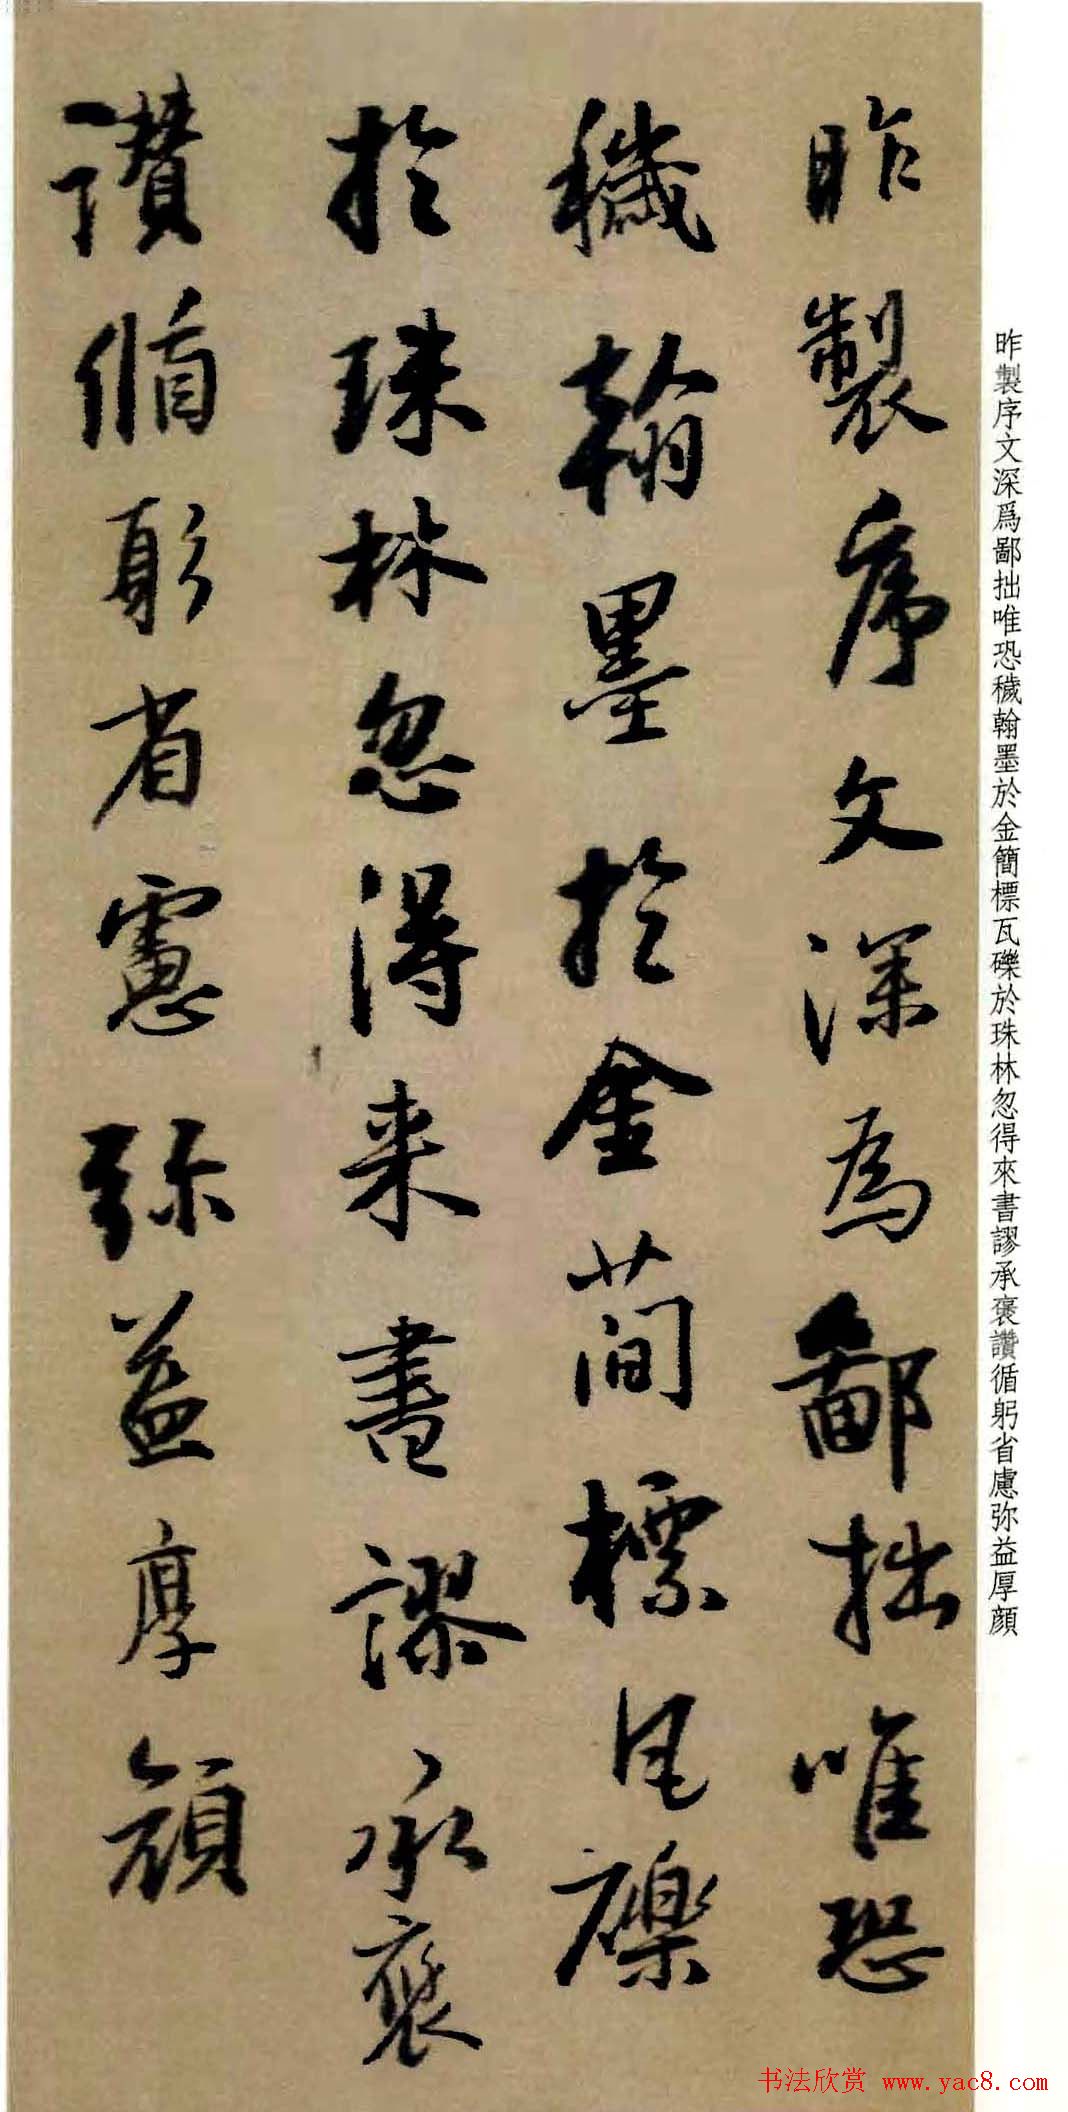 昨製序文深為鄙拙唯恐
穢翰墨於金簡標瓦礫
於珠林忽得来書謬承褒
讃循躬省慮弥益厚顔
昨製序文深爲鄙拙唯恐穢翰墨於金簡標瓦礫於珠林忽得來書謬承褒讚循躬省慮弥益厚顔
书法欣赏 www.yac8.com